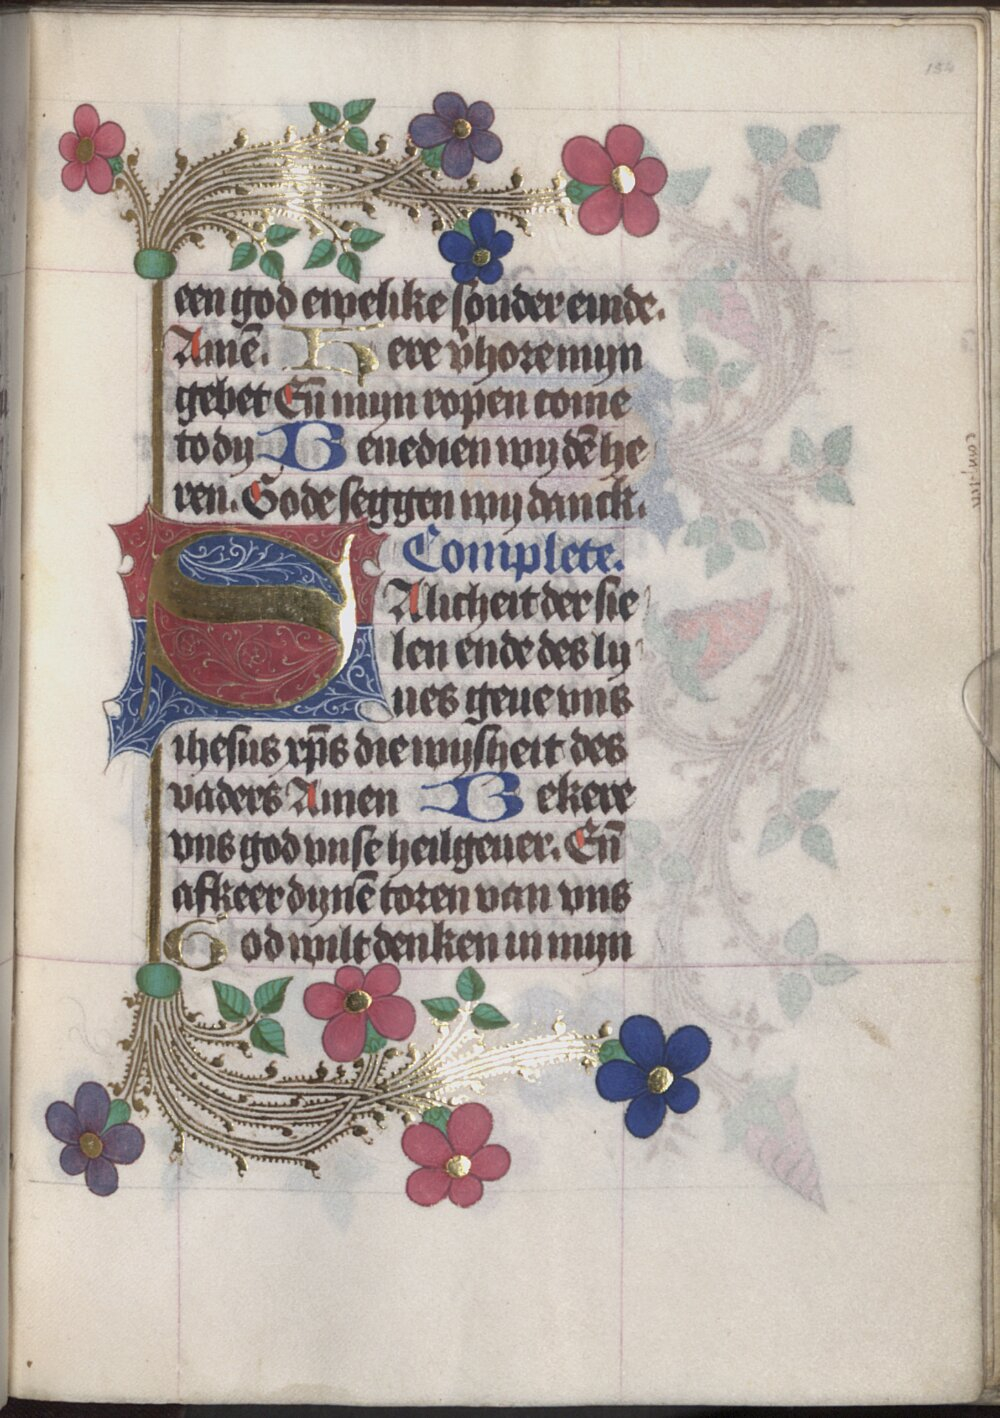 154
een god ewelike sonder einde.
Amē. Here v̄hore myn
gebet Eñ myn ropen come
to dy Benedien wy dē he
ren. Gode seggen wy danck.
Complete.
Salicheit der sie
len ende des ly
ues geue vns
ihesus xp̄s die wysheit des
vaders Amen Bekere
vns god vnse heilgeuer. Eñ
afkeer dynē toren van vns
God wilt denken in myn